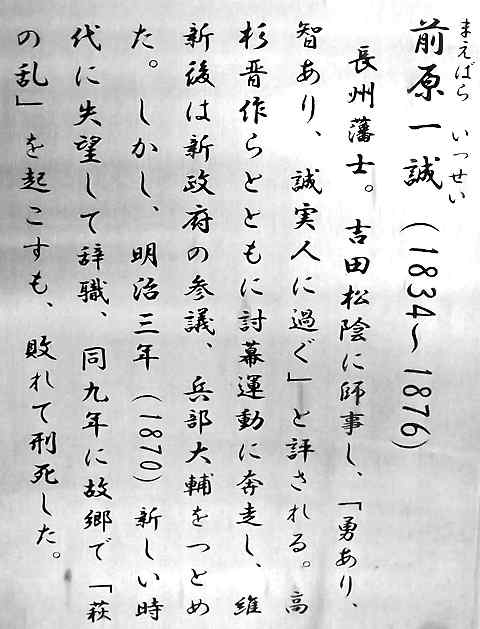 まえばら いっせい
前原一誠（1834〜1876）
長州藩士。吉田松陰に師事し、「勇あり、
智あり、誠実人に過ぐ」と評される。高
杉晋作らとともに討幕運動に奔走し、維
新後は新政府の参議、兵部大輔をつとめ
た。しかし、明治三年（1870）新しい時
代に失望して辞職、同九年に故郷で「萩
の乱」を起こすも、敗れて刑死した。